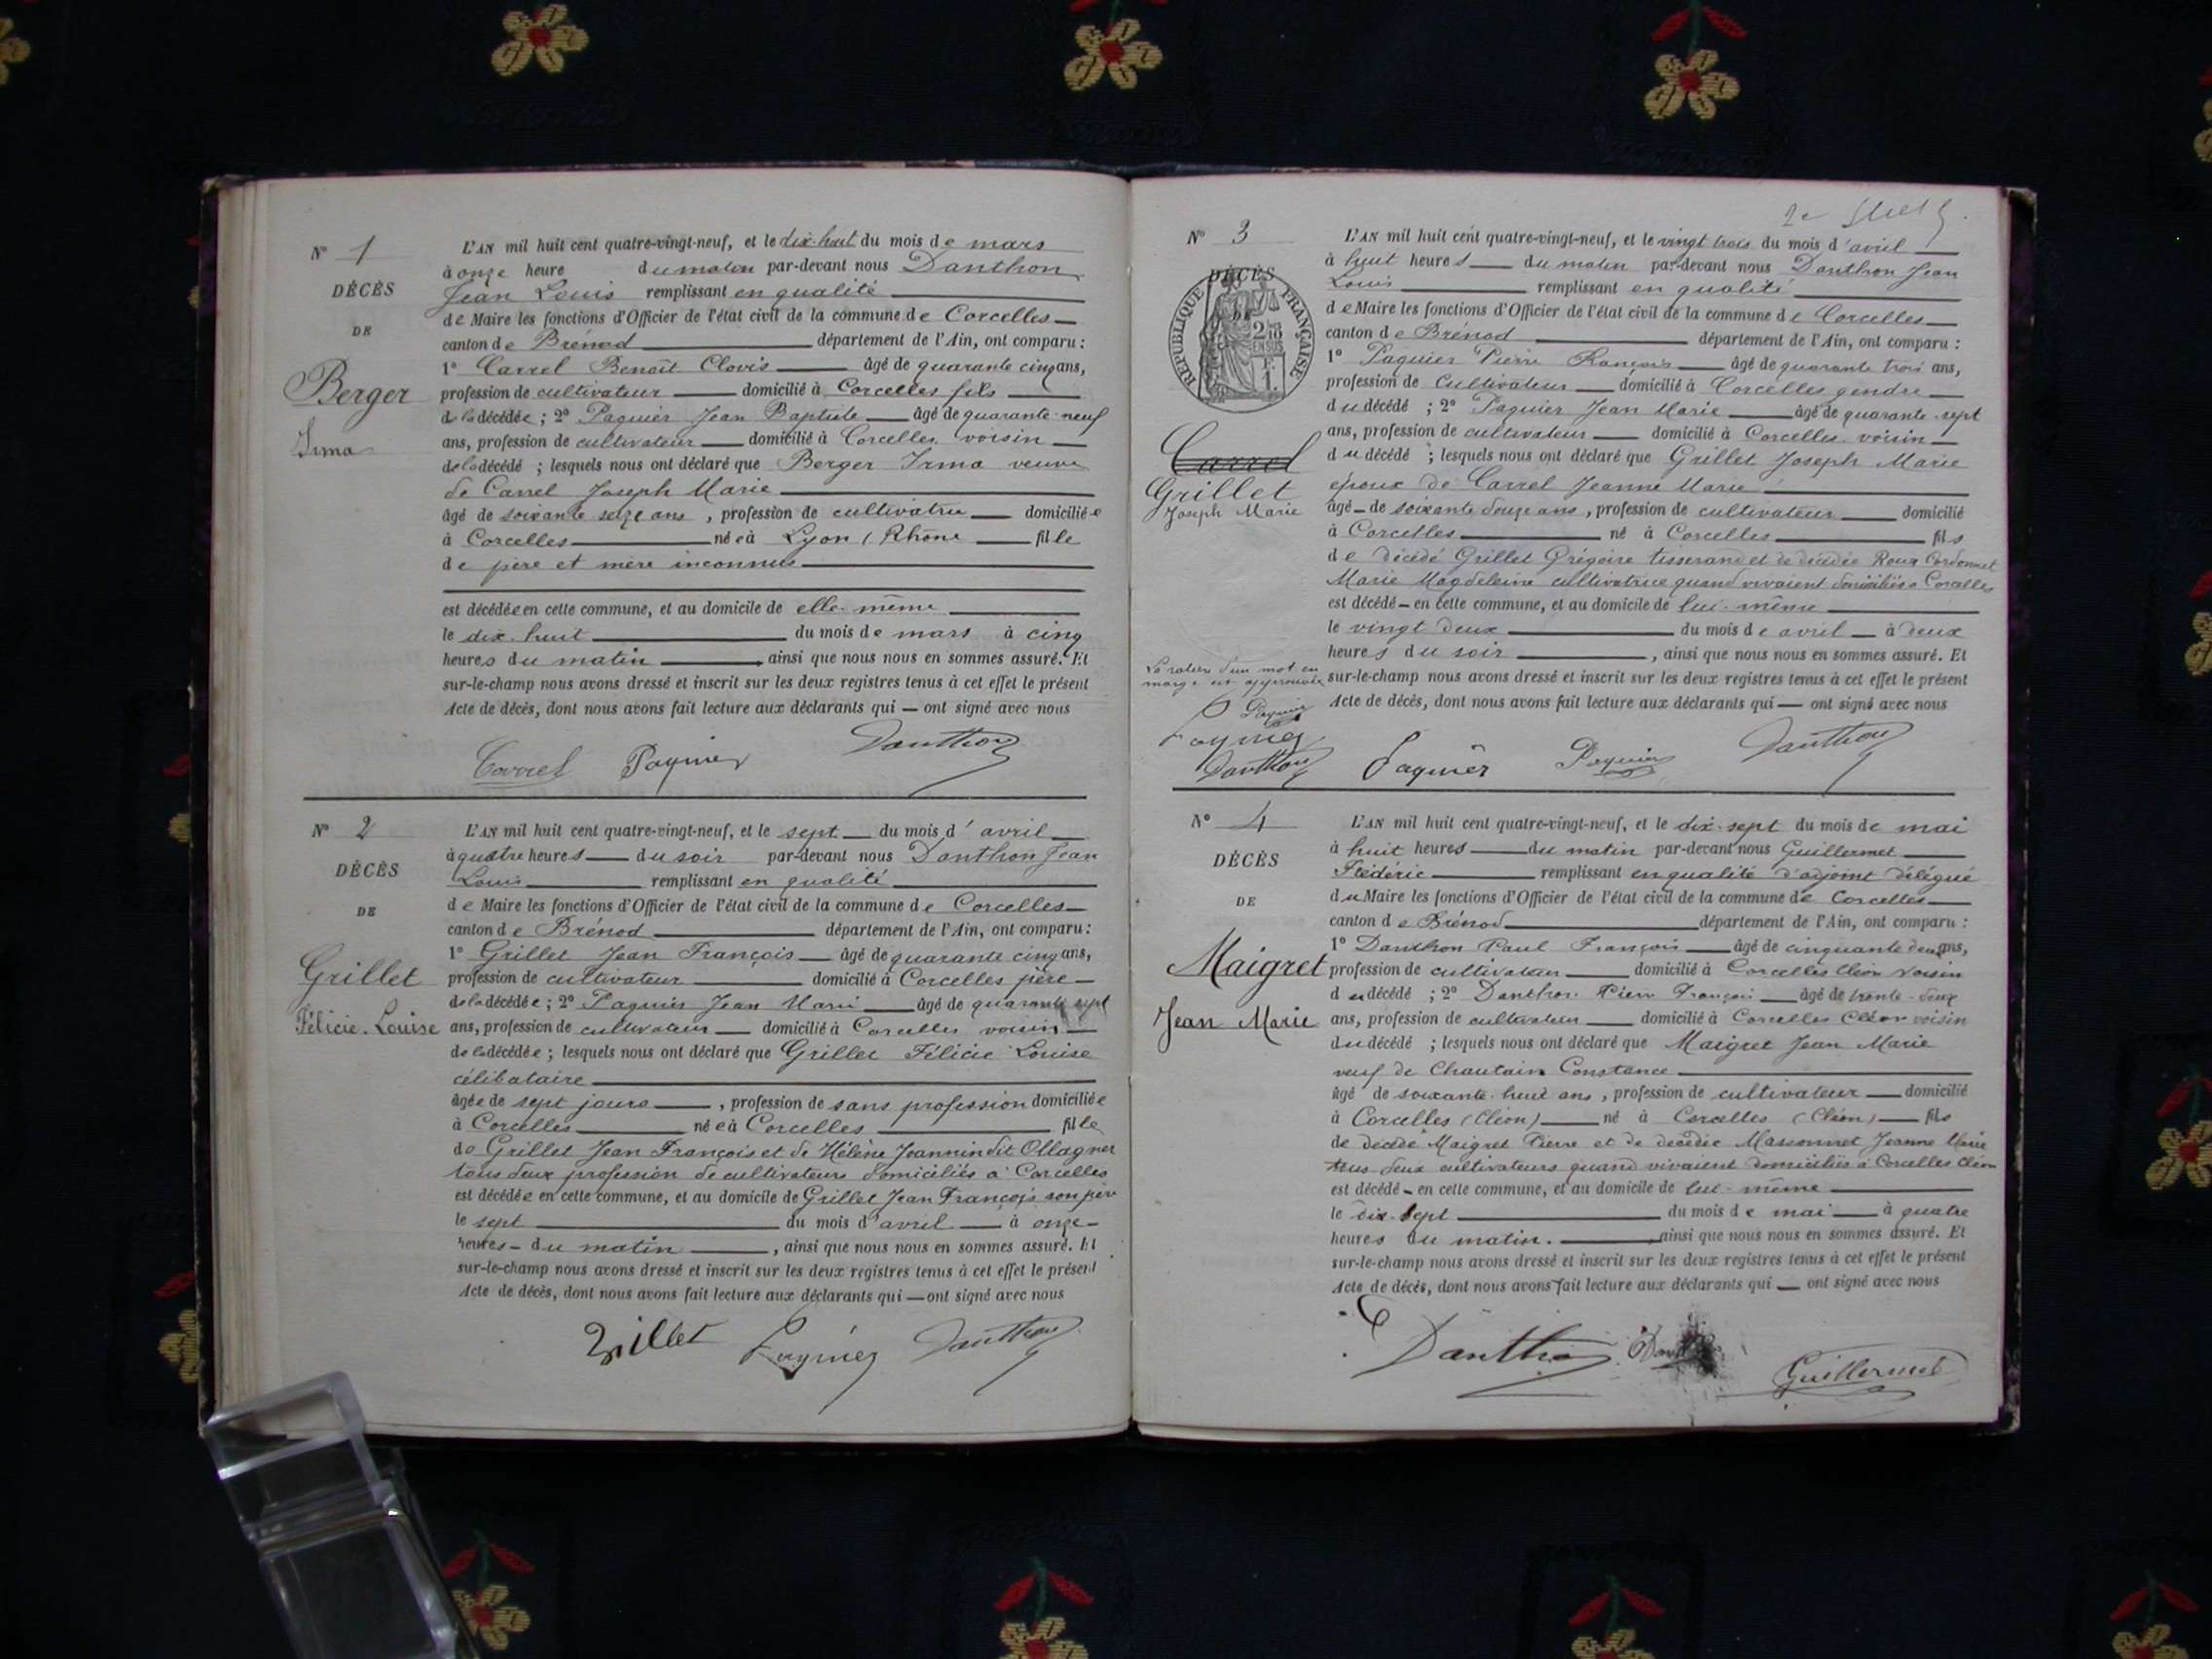 N° 1
DÉCÈS
DE
Berger
Irma
L'AN mil huit cent quatre-vingt-neuf, et le dix-huit du mois de mars
à onze heure du matin par-devant nous Danthon
Jean Louis remplissant en qualité
de Maire les fonctions d'Officier de l'état civil de la commune de Corcelles
canton de Brénod département de l'Ain, ont comparu :
1° Carrel Benoît Clovis âgé de quarante cinq ans,
profession de cultivateur domicilié à Corcelles fils
de la décédée ; 2° Paquier Jean Baptiste âgé de quarante-neuf
ans, profession de cultivateur domicilié à Corcelles voisin
de la décédé ; lesquels nous ont déclaré que Berger Irma veuve
de Carrel Joseph Marie
âgé de soixante seize ans, profession de cultivatrice domiciliée
à Corcelles née à Lyon (Rhône fille
de père et mère inconnus
est décédée en cette commune, et au domicile de elle-même
le dix-huit du mois de mars à cinq
heures du matin, ainsi que nous nous en sommes assuré. Et
sur-le-champ nous avons dressé et inscrit sur les deux registres tenus à cet effet le présent
Acte de décès, dont nous avons fait lecture aux déclarants qui — ont signé avec nous
Carrel Paquier Danthon
N° 2
DÉCÈS
DE
Grillet
Félicie-Louise
L'AN mil huit cent quatre-vingt-neuf, et le sept du mois d'avril
à quatre heures du soir par-devant nous Danthon Jean
Louis remplissant en qualité
de Maire les fonctions d'Officier de l'état civil de la commune de Corcelles
canton de Brénod département de l'Ain, ont comparu :
1° Grillet Jean François âgé de quarante cinq ans,
profession de cultivateur domicilié à Corcelles père
de la décédée ; 2° Paquier Jean Marie âgé de quarante sept
ans, profession de cultivateur domicilié à Corcelles voisin
de la décédée ; lesquels nous ont déclaré que Grillet Félicie Louise
célibataire
âgée de sept jours, profession de sans profession domiciliée
à Corcelles née à Corcelles fille
de Grillet Jean François et de Hélène Joannin dit Ollagner
tous deux profession de cultivateurs domiciliés à Corcelles
est décédée en cette commune, et au domicile de Grillet Jean François son père
le sept du mois d'avril à onze
heures du matin, ainsi que nous nous en sommes assuré. Et
sur-le-champ nous avons dressé et inscrit sur les deux registres tenus à cet effet le présent
Acte de décès, dont nous avons fait lecture aux déclarants qui — ont signé avec nous
Grillet Paquier Danthon
N° 3
DÉCÈS
DE
RÉPUBLIQUE FRANÇAISE
Carrel
Grillet
Joseph Marie
L'AN mil huit cent quatre-vingt-neuf, et le vingt trois du mois d'avril
à huit heures du matin par-devant nous Danthon Jean
Louis remplissant en qualité
de Maire les fonctions d'Officier de l'état civil de la commune de Corcelles
canton de Brénod département de l'Ain, ont comparu :
1° Paquier Pierre François âgé de quarante trois ans,
profession de Cultivateur domicilié à Corcelles gendre
du décédé ; 2° Paquier Jean Marie âgé de quarante-sept
ans, profession de cultivateur domicilié à Corcelles voisin
du décédé ; lesquels nous ont déclaré que Grillet Joseph Marie
époux de Carrel Jeanne Marie
âgé de soixante douze ans, profession de cultivateur domicilié
à Corcelles né à Corcelles fils
de décédé Grillet Grégoire tisserand et de décédée Roux Cordonnet
Marie Magdeleine cultivatrice quand vivaient domiciliés à Corcelles
est décédé en cette commune, et au domicile de lui-même
le vingt deux du mois de avril à deux
heures du soir, ainsi que nous nous en sommes assuré. Et
sur-le-champ nous avons dressé et inscrit sur les deux registres tenus à cet effet le présent
Acte de décès, dont nous avons fait lecture aux déclarants qui — ont signé avec nous
La rature d'un mot en
marge est approuvée
Paquier
Paquier
Danthon
Paquier Paquier Danthon
N° 4
DÉCÈS
DE
Maigret
Jean Marie
L'AN mil huit cent quatre-vingt-neuf, et le dix-sept du mois de mai
à huit heures du matin par-devant nous Guillermet
Frédéric remplissant en qualité d'adjoint délégué
du Maire les fonctions d'Officier de l'état civil de la commune de Corcelles
canton de Brénod département de l'Ain, ont comparu :
1° Danthon Paul François âgé de cinquante deux ans,
profession de cultivateur domicilié à Corcelles Cléon voisin
du décédé ; 2° Danthon Pierre François âgé de trente-deux
ans, profession de cultivateur domicilié à Corcelles Cléon voisin
du décédé ; lesquels nous ont déclaré que Maigret Jean Marie
veuf de Chautain Constance
âgé de soixante-huit ans, profession de cultivateur domicilié
à Corcelles (Cléon) né à Corcelles (Cléon) fils
de décédé Maigret Pierre et de décédée Massonnet Jeanne Marie
tous deux cultivateurs quand vivaient domiciliés à Corcelles Cléon
est décédé en cette commune, et au domicile de lui-même
le dix-sept du mois de mai à quatre
heures du matin. ainsi que nous nous en sommes assuré. Et
sur-le-champ nous avons dressé et inscrit sur les deux registres tenus à cet effet le présent
Acte de décès, dont nous avons fait lecture aux déclarants qui — ont signé avec nous
Danthon Guillermet